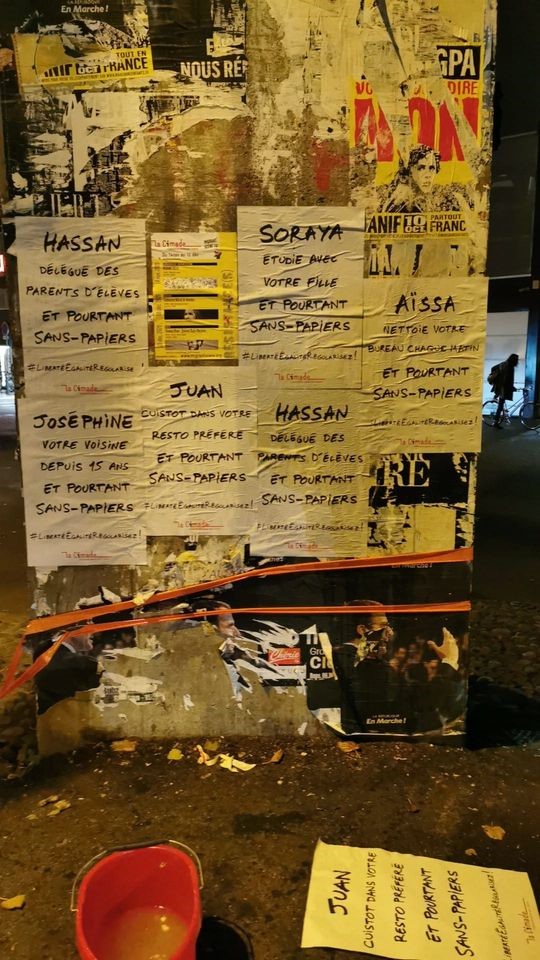 En Marche !
TOUT EN
FRANCE
NOUS RÉ
GPA
NON
MANIF 10 oct PARTOUT
FRANC
HASSAN
DÉLÉGUÉ DES
PARENTS D'ÉLÈVES
ET POURTANT
SANS-PAPIERS
#LIBERTÉEGALITÉREGULARISE
la Cimade
la Cimade
SORAYA
ETUDIE AVEC
VOTRE FILLE
ET POURTANT
SANS-PAPIERS
#LIBERTÉEGALITÉREGULARISEZ!
la Cimade
AÏSSA
NETTOIE VOTRE
BUREAU CHAQUE MATIN
ET POURTANT
SANS-PAPIERS
#LIBERTÉEGALITÉREGULARISEZ!
la Cimade
JOSÉPHINE
VOTRE VOISINE
DEPUIS 15 ANS
ET POURTANT
SANS-PAPIERS
#LIBERTÉEGALITÉREGULARISEZ!
la Cimade
JUAN
CUISTOT DANS VOTRE
RESTO PRÉFÉRÉ
ET POURTANT
SANS-PAPIERS
#LIBERTÉEGALITÉREGULARISEZ!
la Cimade
HASSAN
DÉLÉGUÉ DES
PARENTS D'ÉLÈVES
ET POURTANT
SANS-PAPIERS
#LIBERTÉEGALITÉREGULARISEZ!
la Cimade
RE
En Marche !
Chérie
LA RÉPUBLIQUE
En Marche !
JUAN
CUISTOT DANS VOTRE
RESTO PRÉFÉRÉ
ET POURTANT
SANS-PAPIERS
#LIBERTÉEGALITÉREGULARISEZ!
la Cimade